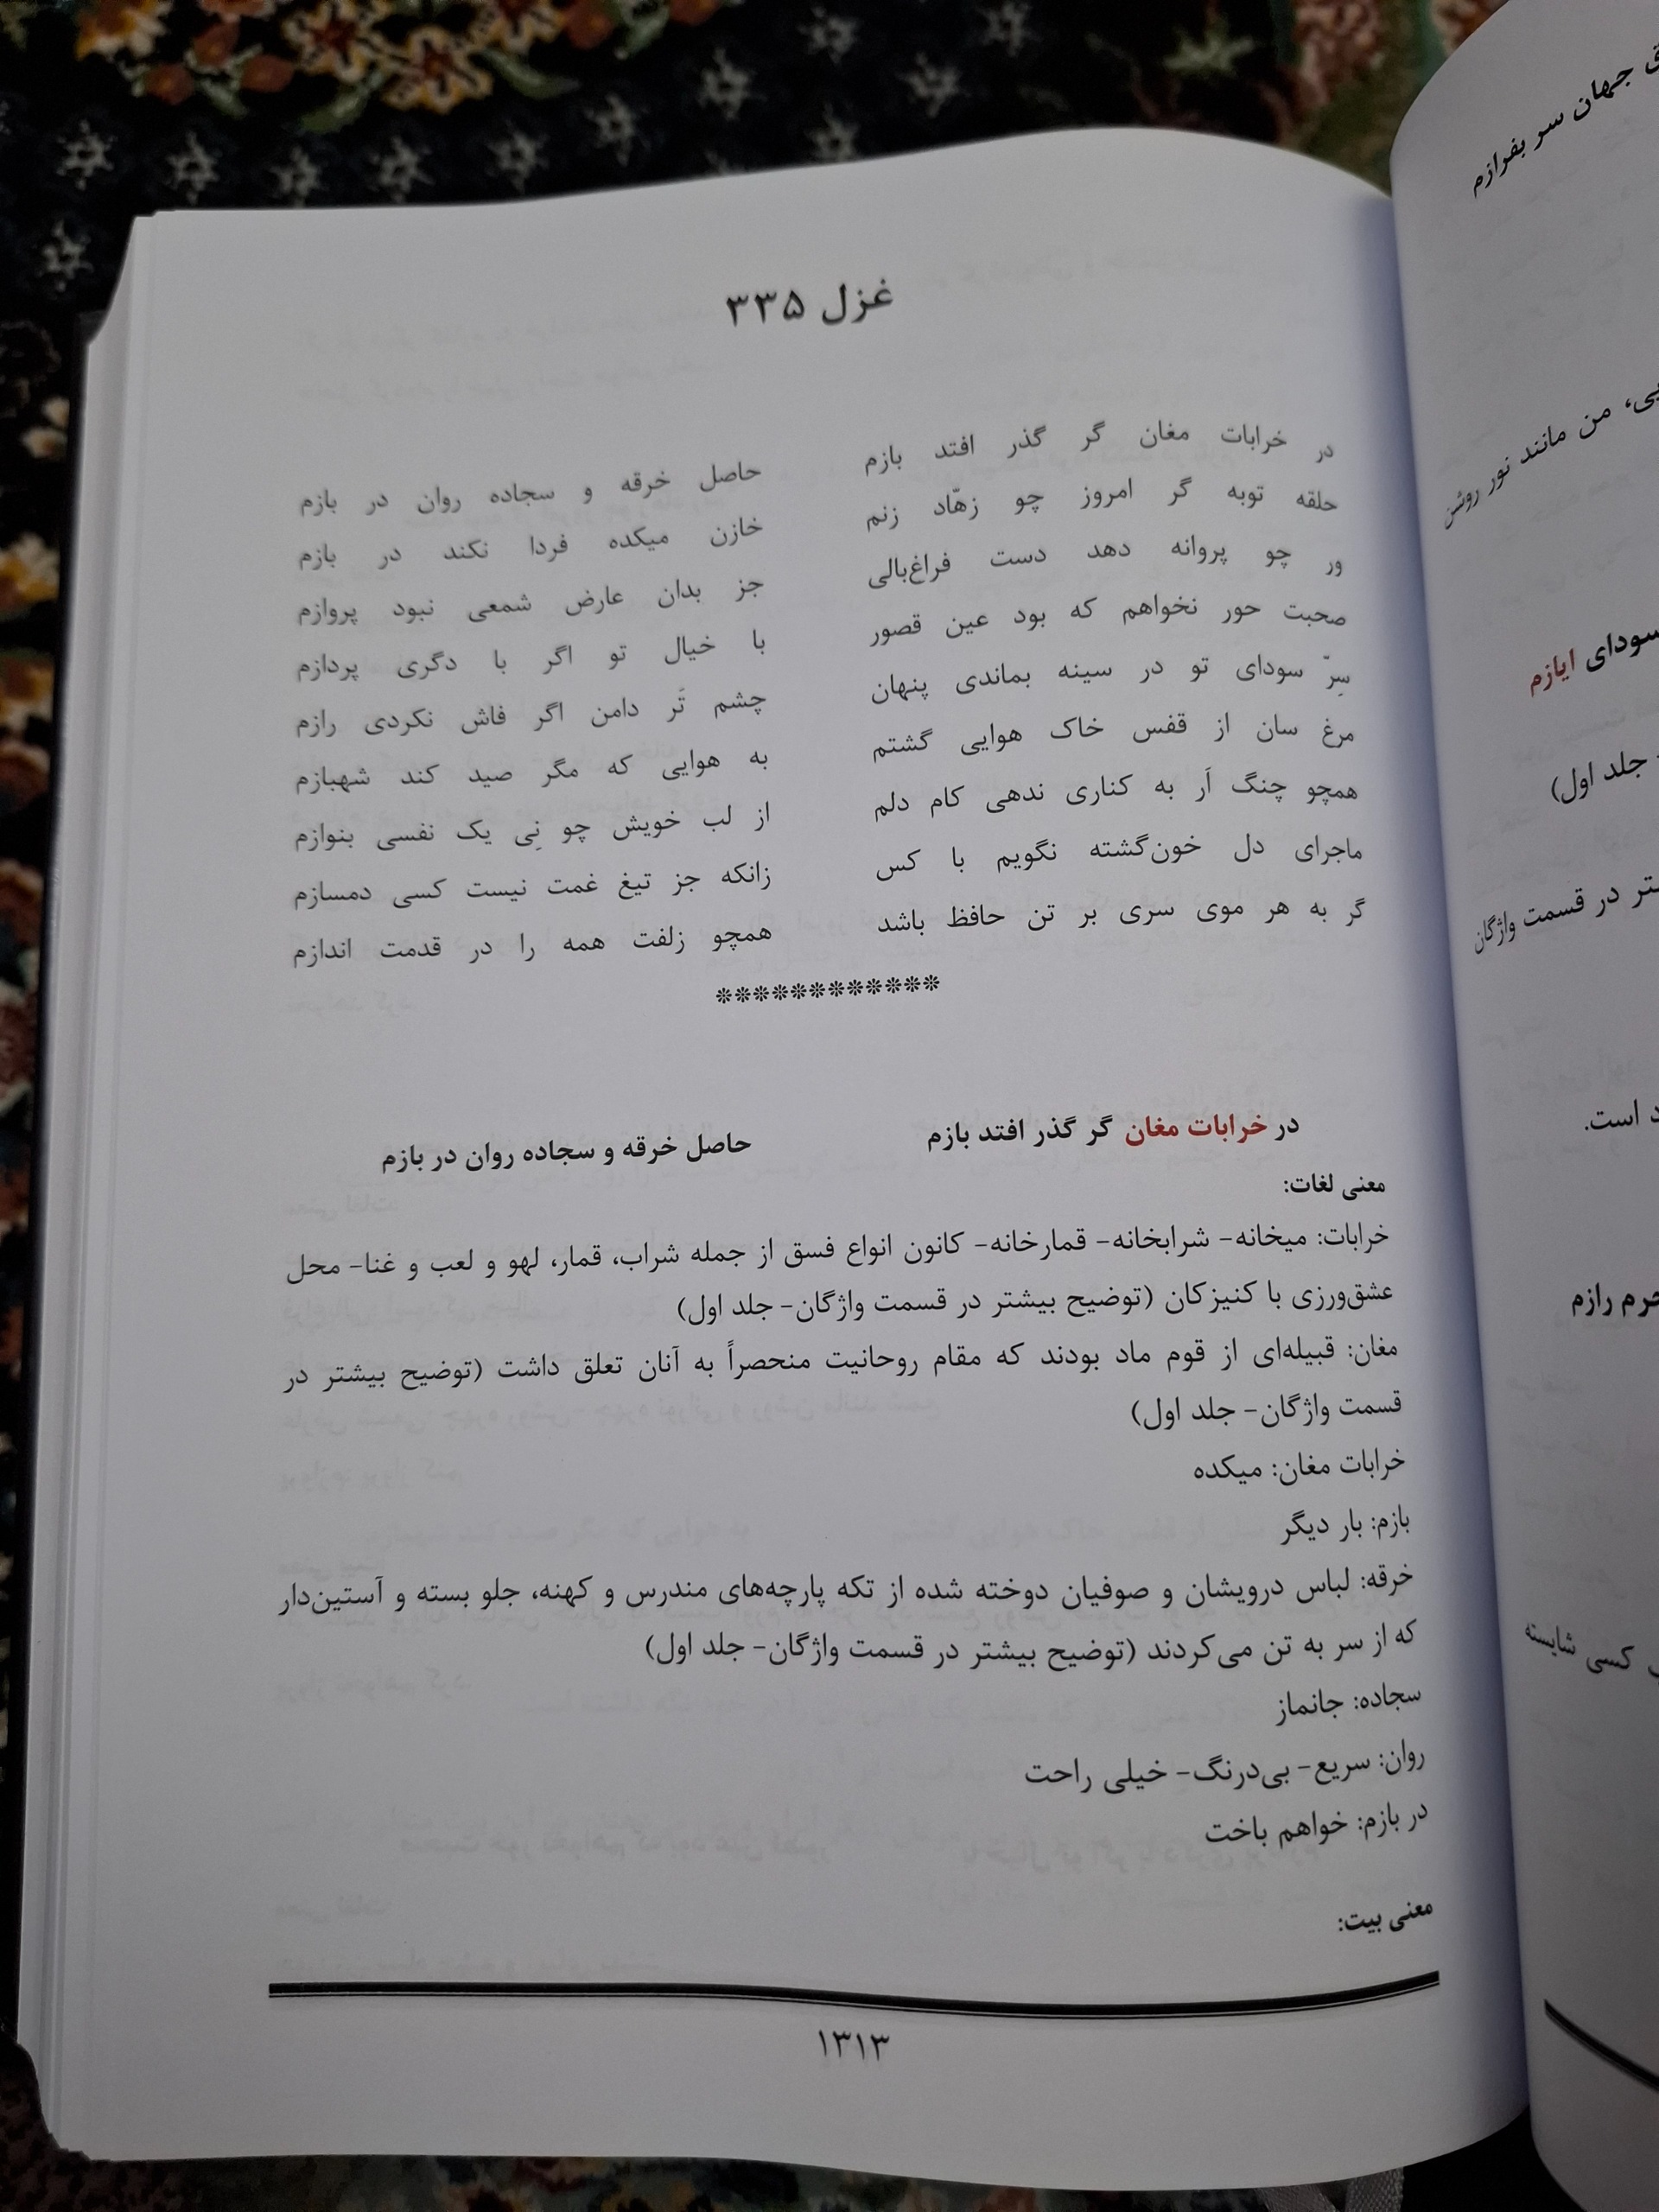 غزل ۳۳۵
در خرابات مغان گر گذر افتد بازم
حاصل خرقه و سجاده روان در بازم
حلقه توبه گر امروز چو زهّاد زنم
خازن میکده فردا نکند در بازم
ور چو پروانه دهد دست فراغ‌بالی
جز بدان عارض شمعی نبود پروازم
صحبت حور نخواهم که بود عین قصور
با خیال تو اگر با دگری پردازم
سِرّ سودای تو در سینه بماندی پنهان
چشم تَر دامن اگر فاش نکردی رازم
مرغ سان از قفس خاک هوایی گشتم
به هوایی که مگر صید کند شهبازم
همچو چنگ اَر به کناری ندهی کام دلم
از لب خویش چو نِی یک نفسی بنوازم
ماجرای دل خون‌گشته نگویم با کس
زانکه جز تیغ غمت نیست کسی دمسازم
گر به هر موی سری بر تن حافظ باشد
همچو زلفت همه را در قدمت اندازم
************
در خرابات مغان گر گذر افتد بازم
حاصل خرقه و سجاده روان در بازم
معنی لغات:
خرابات: میخانه- شرابخانه- قمارخانه- کانون انواع فسق از جمله شراب، قمار، لهو و لعب و غنا- محل
عشق‌ورزی با کنیزکان (توضیح بیشتر در قسمت واژگان- جلد اول)
مغان: قبیله‌ای از قوم ماد بودند که مقام روحانیت منحصراً به آنان تعلق داشت (توضیح بیشتر در
قسمت واژگان- جلد اول)
خرابات مغان: میکده
بازم: بار دیگر
خرقه: لباس درویشان و صوفیان دوخته شده از تکه پارچه‌های مندرس و کهنه، جلو بسته و آستین‌دار
که از سر به تن می‌کردند (توضیح بیشتر در قسمت واژگان- جلد اول)
سجاده: جانماز
روان: سریع- بی‌درنگ- خیلی راحت
در بازم: خواهم باخت
معنی بیت:
۱۳۱۳
جهان سر بفرازم
من مانند نور روشن
سودای ایازم
جلد اول)
در قسمت واژگان
است.
رازم
کسی شایسته